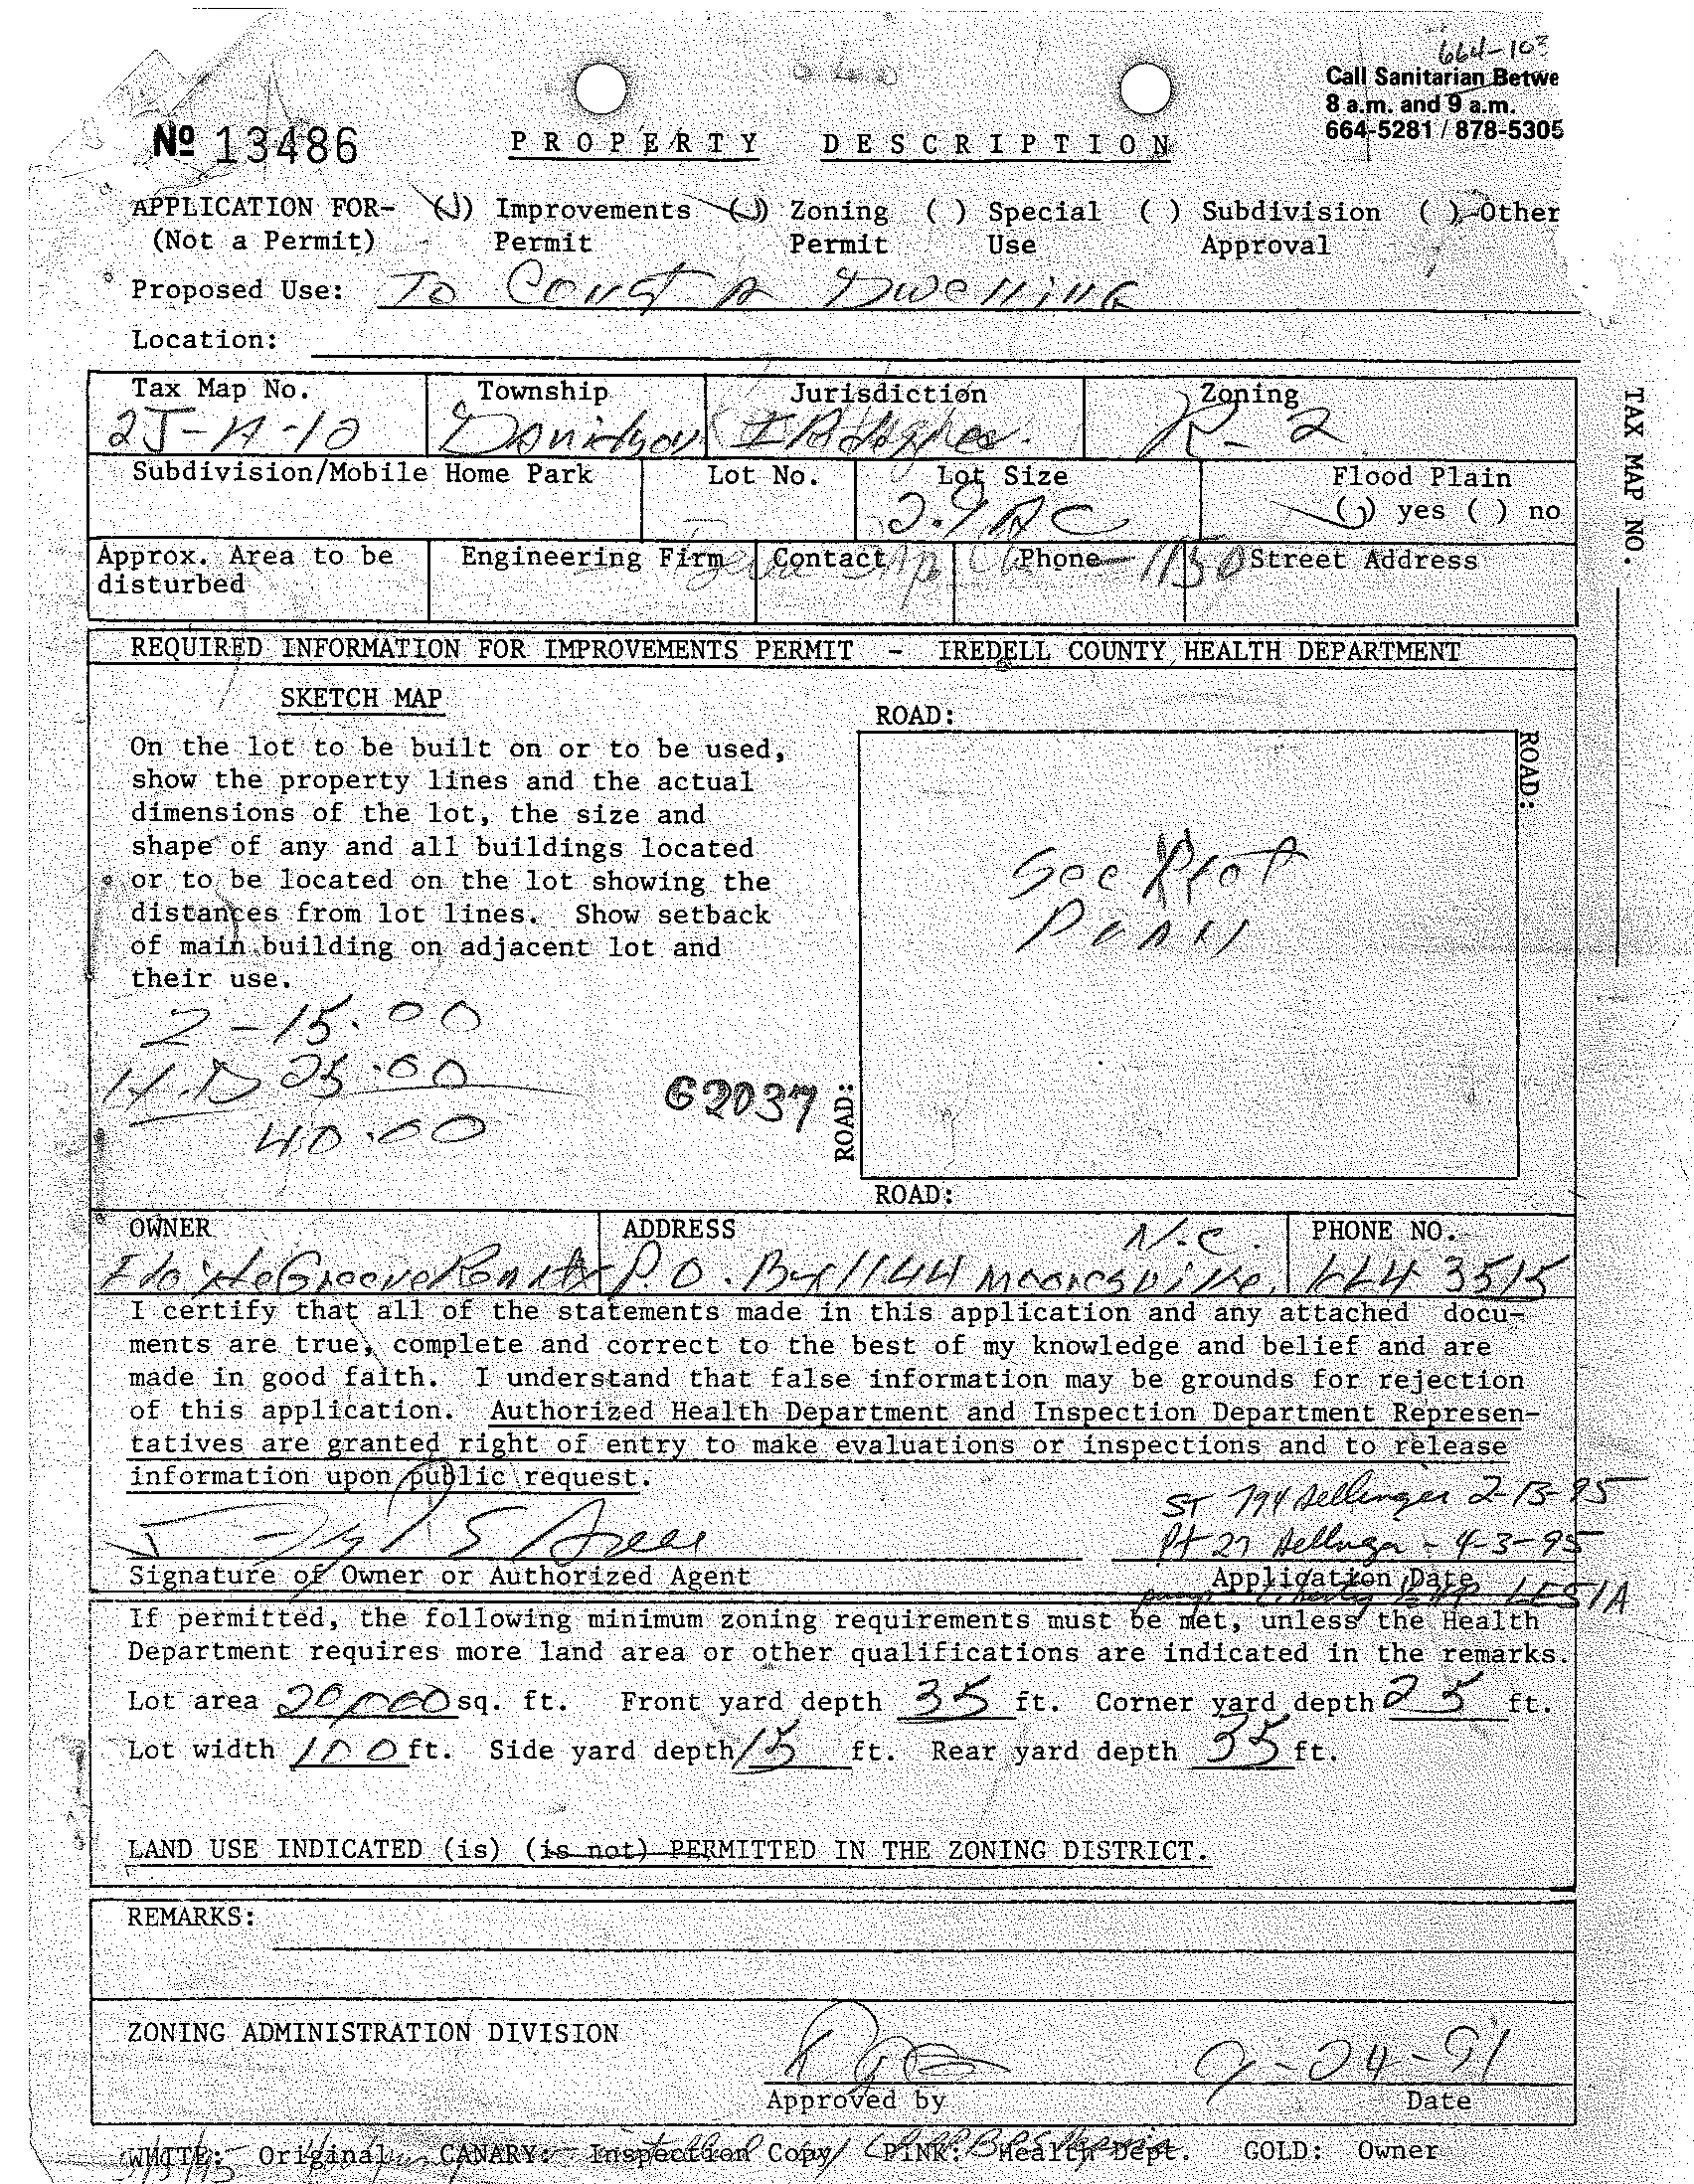 664-103
Call Sanitarian Betwe
8 a.m. and 9 a.m.
664-5281 / 878-5305
Nº 13486
PROPERTY DESCRIPTION
APPLICATION FOR- (✓) Improvements (✓) Zoning ( ) Special ( ) Subdivision ( ) Other
(Not a Permit) Permit Permit Use Approval
Proposed Use: To Const A Dwelling
Location:
Tax Map No. Township Jurisdiction Zoning
2J-A-10 R-2
Subdivision/Mobile Home Park Lot No. Lot Size Flood Plain
2.9 AC (✓) yes ( ) no
Approx. Area to be Engineering Firm Contact Phone Street Address
disturbed 1150
TAX MAP NO.
REQUIRED INFORMATION FOR IMPROVEMENTS PERMIT - IREDELL COUNTY HEALTH DEPARTMENT
SKETCH MAP
ROAD:
ROAD:
On the lot to be built on or to be used,
show the property lines and the actual
dimensions of the lot, the size and
shape of any and all buildings located
or to be located on the lot showing the
distances from lot lines. Show setback
of main building on adjacent lot and
their use.
See Plot
2-15.00
H.D 25.00
40.00
G2037
ROAD:
ROAD:
OWNER ADDRESS PHONE NO.
P.O. Box 1144 Mooresville, N.C. 664 3515
I certify that all of the statements made in this application and any attached docu-
ments are true, complete and correct to the best of my knowledge and belief and are
made in good faith. I understand that false information may be grounds for rejection
of this application. Authorized Health Department and Inspection Department Represen-
tatives are granted right of entry to make evaluations or inspections and to release
information upon public request.
ST 794 Dellinger 2-13-95
Pt 27 Dellinger - 4-3-95
Signature of Owner or Authorized Agent Application Date
pump Liberty LE51A
If permitted, the following minimum zoning requirements must be met, unless the Health
Department requires more land area or other qualifications are indicated in the remarks.
Lot area 20,000 sq. ft. Front yard depth 35 ft. Corner yard depth 25 ft.
Lot width 100 ft. Side yard depth 15 ft. Rear yard depth 35 ft.
LAND USE INDICATED (is) (is not) PERMITTED IN THE ZONING DISTRICT.
REMARKS:
ZONING ADMINISTRATION DIVISION
9-24-91
Approved by Date
WHITE: Original CANARY: Inspection Copy PINK: Health Dept. GOLD: Owner